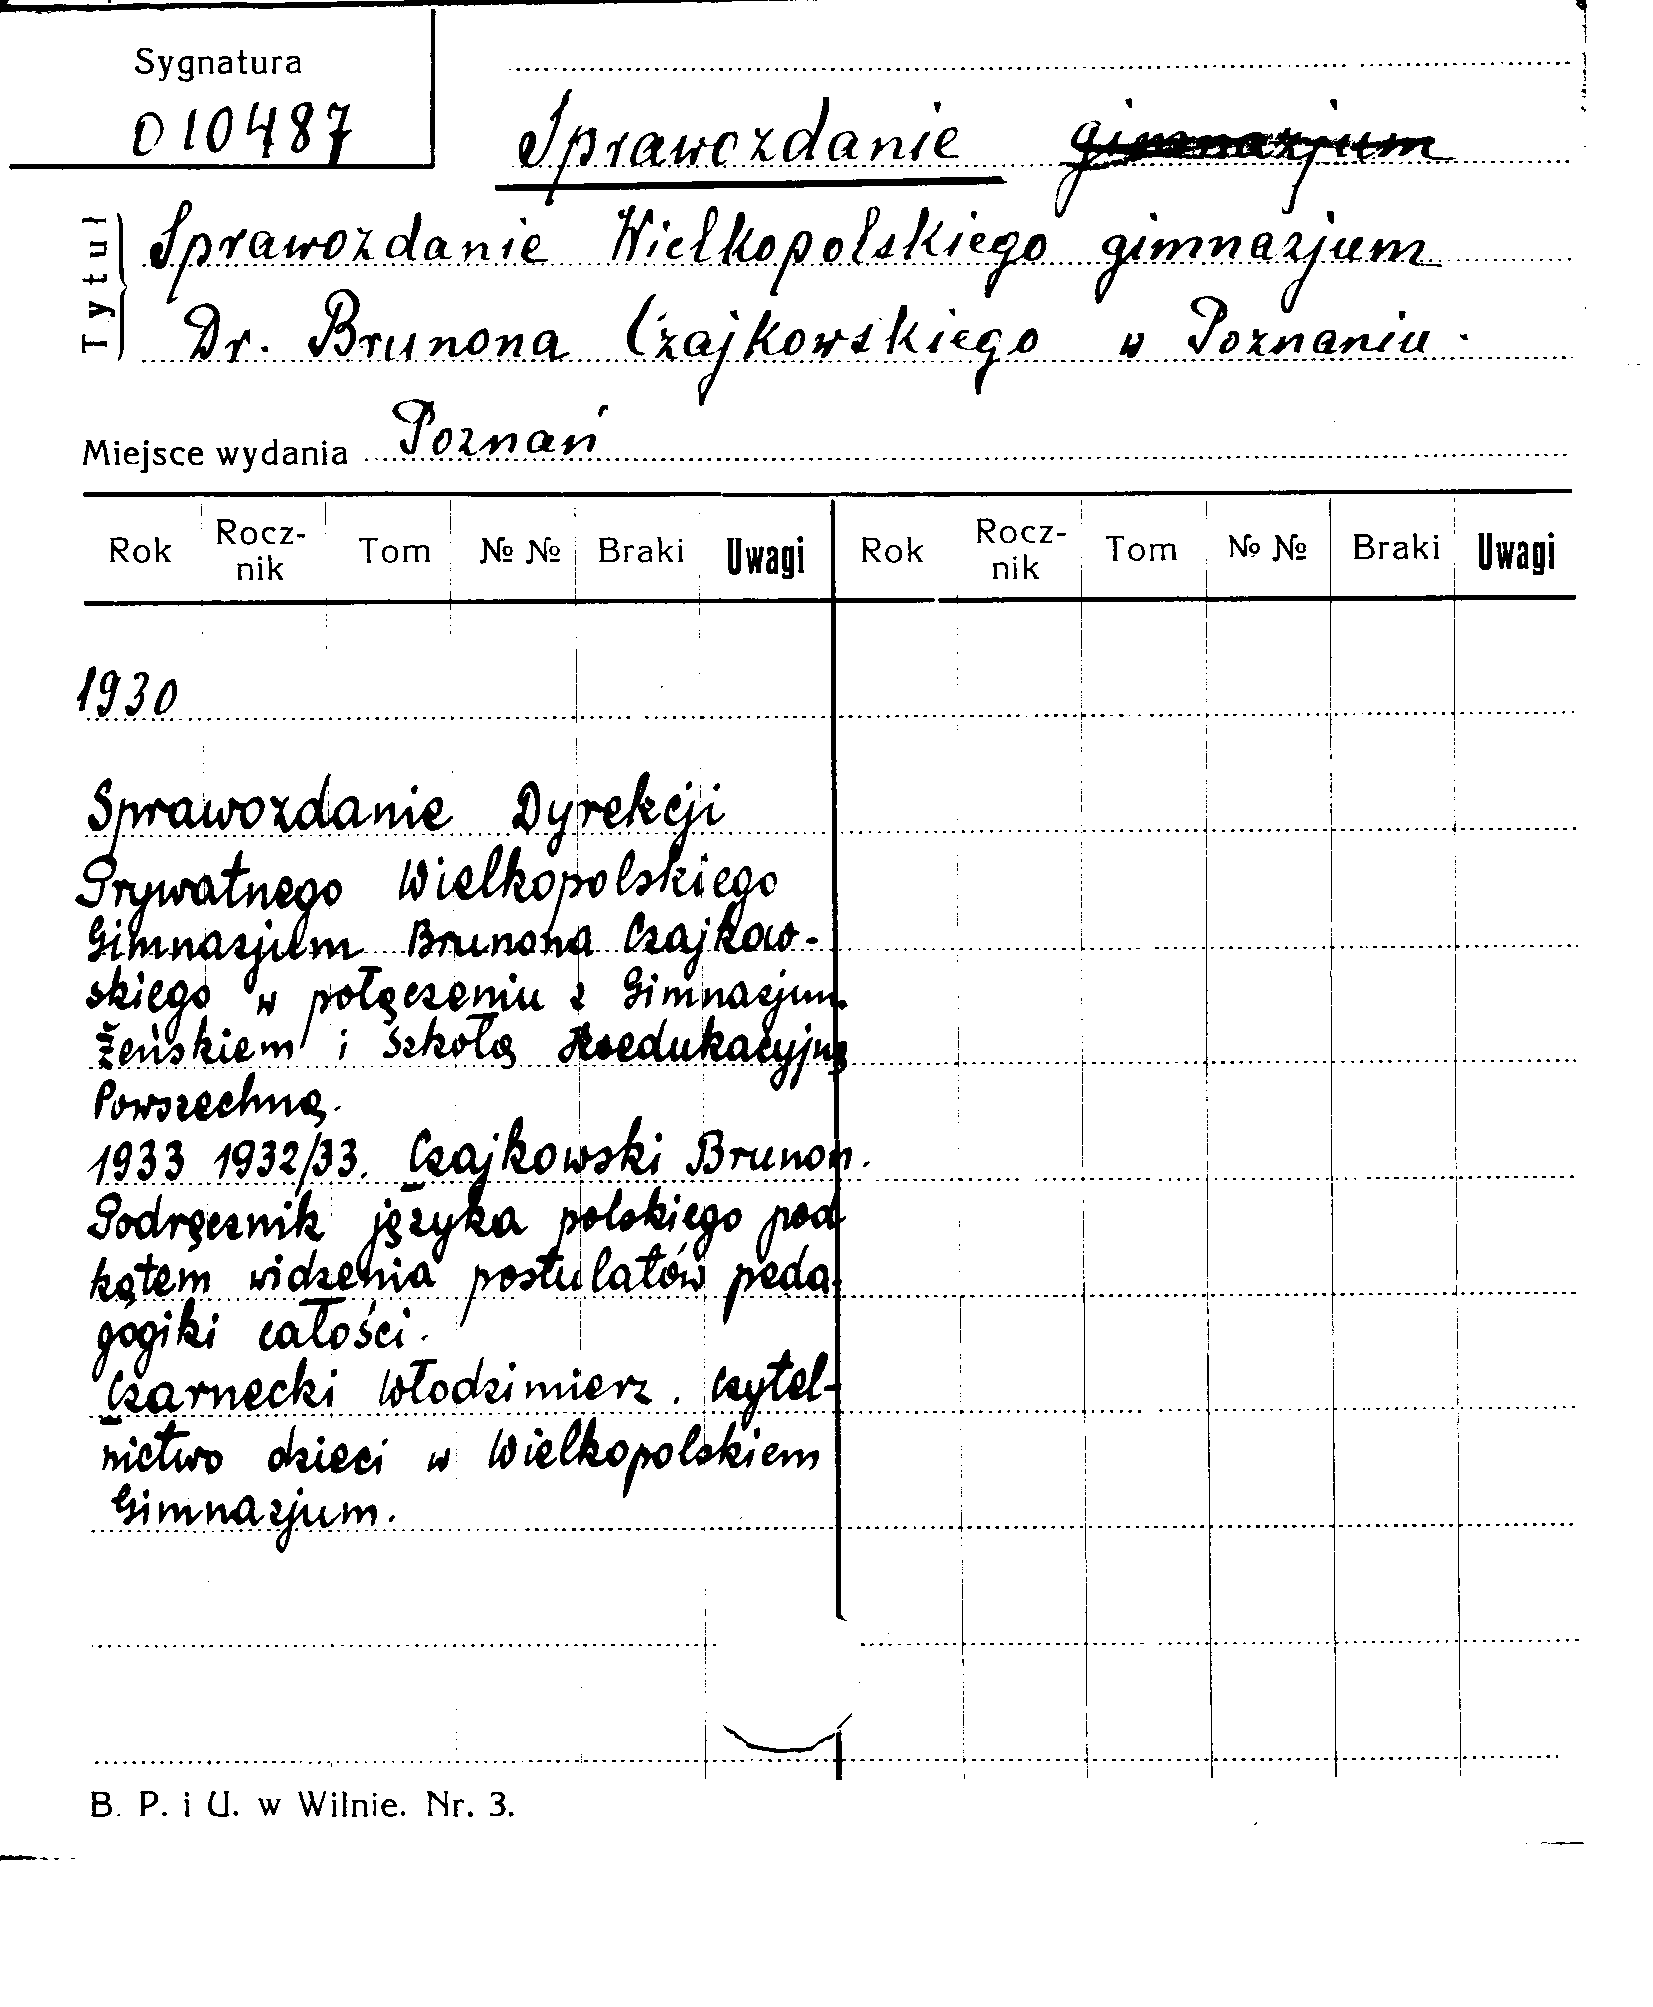 Sygnatura
010487
Sprawozdanie gimnazjum
Tytuł
Sprawozdanie Wielkopolskiego gimnazjum
Dr. Brunona Czajkowskiego w Poznaniu.
Miejsce wydania Poznań
Rok Rocz-nik Tom № № Braki Uwagi Rok Rocz-nik Tom № № Braki Uwagi
1930
Sprawozdanie Dyrekcji
Prywatnego Wielkopolskiego
Gimnazjum Brunona Czajkow-
skiego w połączeniu z Gimnazjum
żeńskiem i Szkołą Koedukacyjną
Powszechną.
1933 1932/33. Czajkowski Brunon.
Podręcznik języka polskiego pod
kątem widzenia postulatów peda-
gogiki całości.
Czarnecki Włodzimierz. Czytel-
nictwo dzieci w Wielkopolskiem
Gimnazjum.
B. P. i U. w Wilnie. Nr. 3.